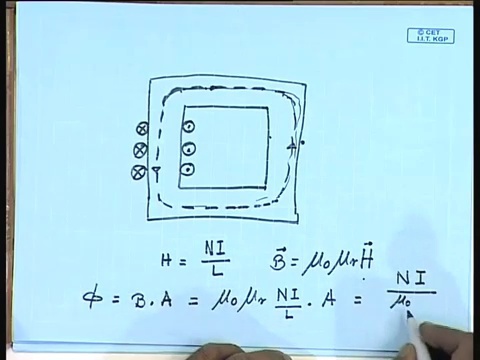 © CET
I.I.T. KGP
H = NI/L    B⃗ = μ₀μᵣH⃗
φ = B.A = μ₀μᵣ NI/L . A = NI/μ₀